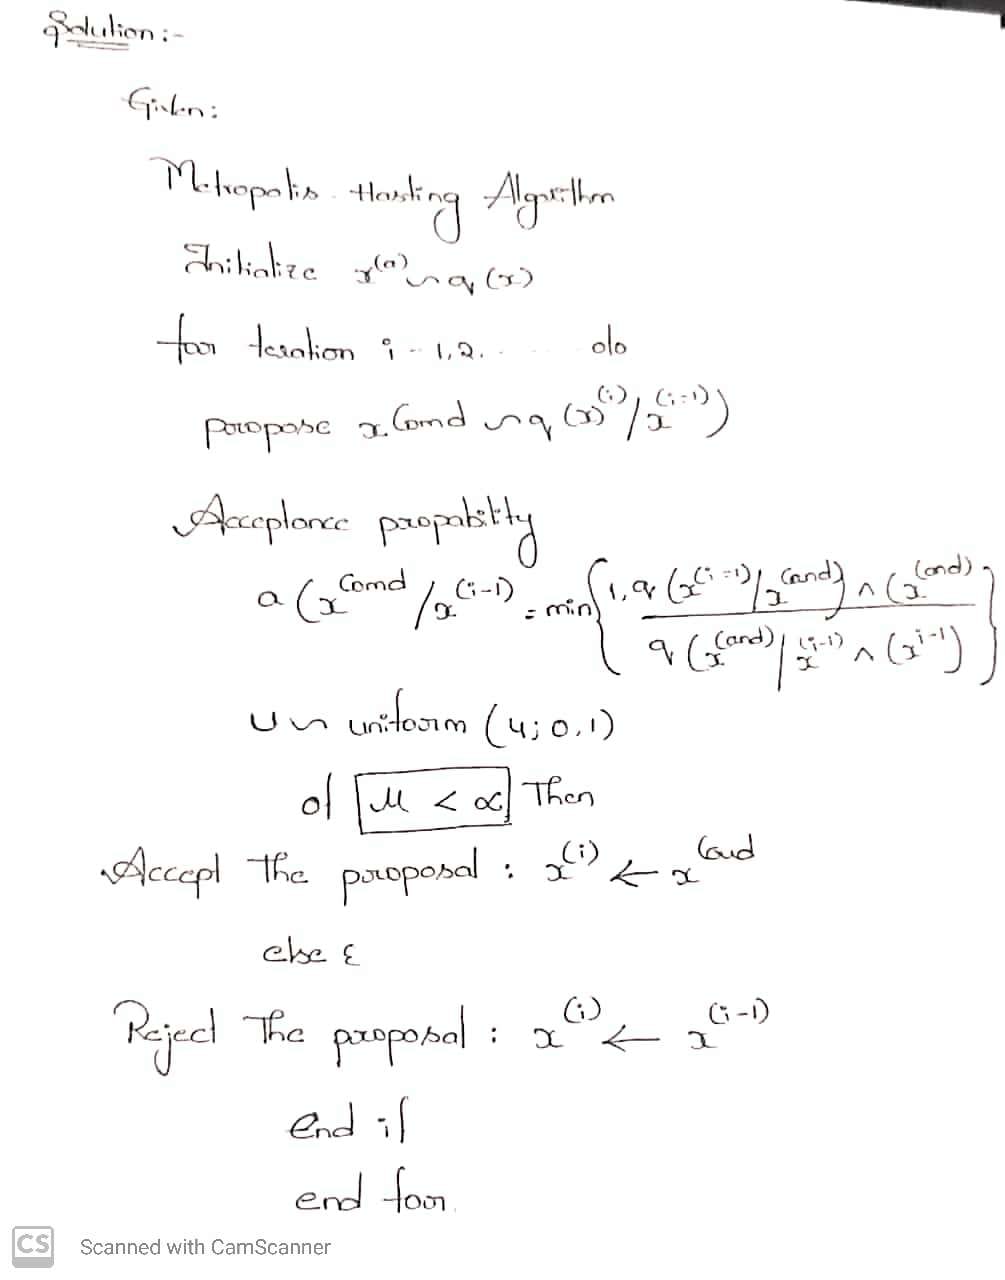 Solution:-
Given:
Metropolis - Hasting Algorithm
Initialize x^(0) ~ q (x)
for teration i - 1,2. . . . . do
propose x Cand ~ q (x)^(i) / x^(i-1))
Acceptance propability
a (x^Cand / x^(i-1)) = min { 1, q (x^(i-1) / x^cand) ^ (x^(cand))
q (x^(cand) / x^(i-1) ^ (x^i-1) }
U ~ uniform (u; 0,1)
of u < ∝ Then
Accept the proposal : x^(i) ← x^Cand
else ε
Reject The proposal : x^(i) ← x^(i-1)
end if
end for.
CS Scanned with CamScanner